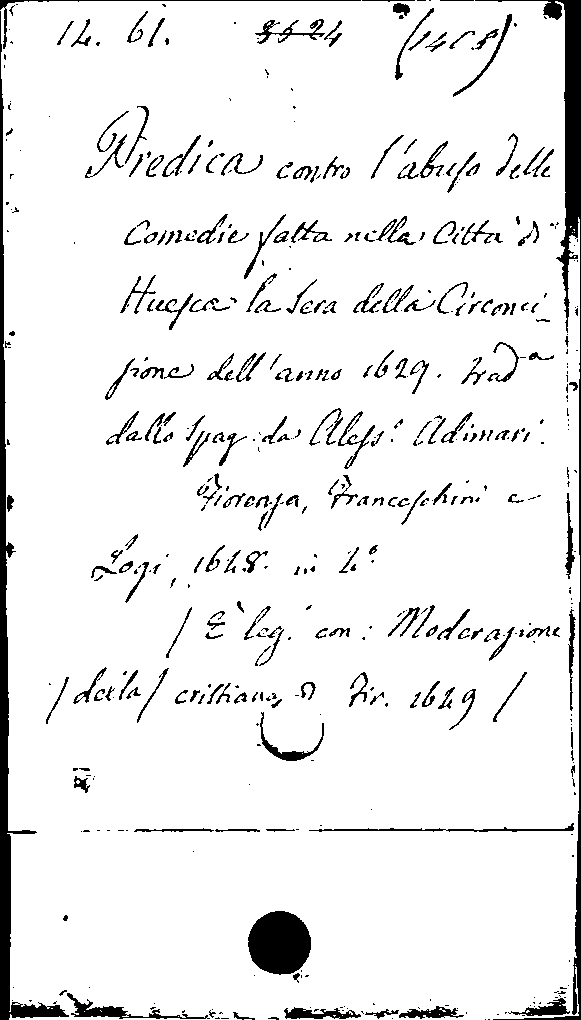 12. 61. 8624 (1405)
Predica contro l'abuso delle
Comedie fatta nella Città di
Huesca la Sera della Circonci_
sione dell'anno 1629. trad.a
dallo Spag. da Aless.o Adimari.
Fiorenza, Franceschini e
Logi, 1648. in 4.o
/ È leg. con: Moderazione
/ della / cristiana, di Fir. 1649 /